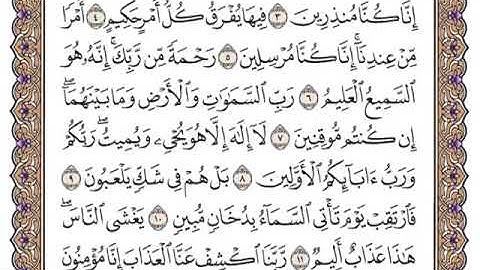 إِنَّا كُنَّا مُنذِرِينَ ٣ فِيهَا يُفْرَقُ كُلُّ أَمْرٍ حَكِيمٍ ٤ أَمْرًا
مِّنْ عِندِنَآ ۚ إِنَّا كُنَّا مُرْسِلِينَ ٥ رَحْمَةً مِّن رَّبِّكَ ۚ إِنَّهُۥ هُوَ
ٱلسَّمِيعُ ٱلْعَلِيمُ ٦ رَبِّ ٱلسَّمَٰوَٰتِ وَٱلْأَرْضِ وَمَا بَيْنَهُمَآ ۖ
إِن كُنتُم مُّوقِنِينَ ٧ لَآ إِلَٰهَ إِلَّا هُوَ يُحْىِۦ وَيُمِيتُ ۖ رَبُّكُمْ
وَرَبُّ ءَابَآئِكُمُ ٱلْأَوَّلِينَ ٨ بَلْ هُمْ فِى شَكٍّ يَلْعَبُونَ ٩
فَٱرْتَقِبْ يَوْمَ تَأْتِى ٱلسَّمَآءُ بِدُخَانٍ مُّبِينٍ ١٠ يَغْشَى ٱلنَّاسَ ۖ
هَٰذَا عَذَابٌ أَلِيمٌ ١١ رَّبَّنَا ٱكْشِفْ عَنَّا ٱلْعَذَابَ إِنَّا مُؤْمِنُونَ